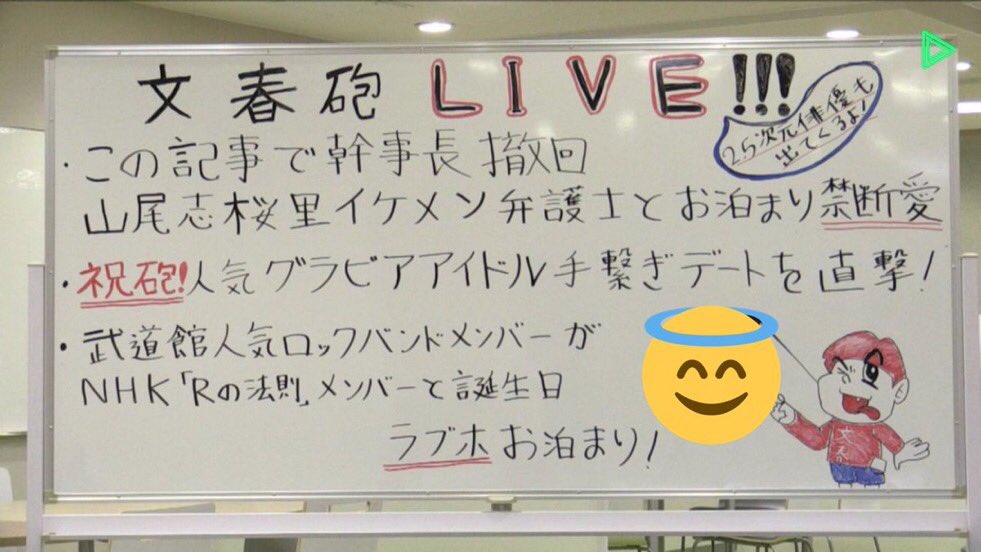 文春砲 LIVE!!!
2.5次元俳優も
出てくるよ!
・この記事で幹事長撤回
山尾志桜里イケメン弁護士とお泊まり禁断愛
・祝砲!人気グラビアアイドル手繋ぎデートを直撃!
・武道館人気ロックバンドメンバーが
NHK「Rの法則」メンバーと誕生日
ラブホお泊まり!
文春